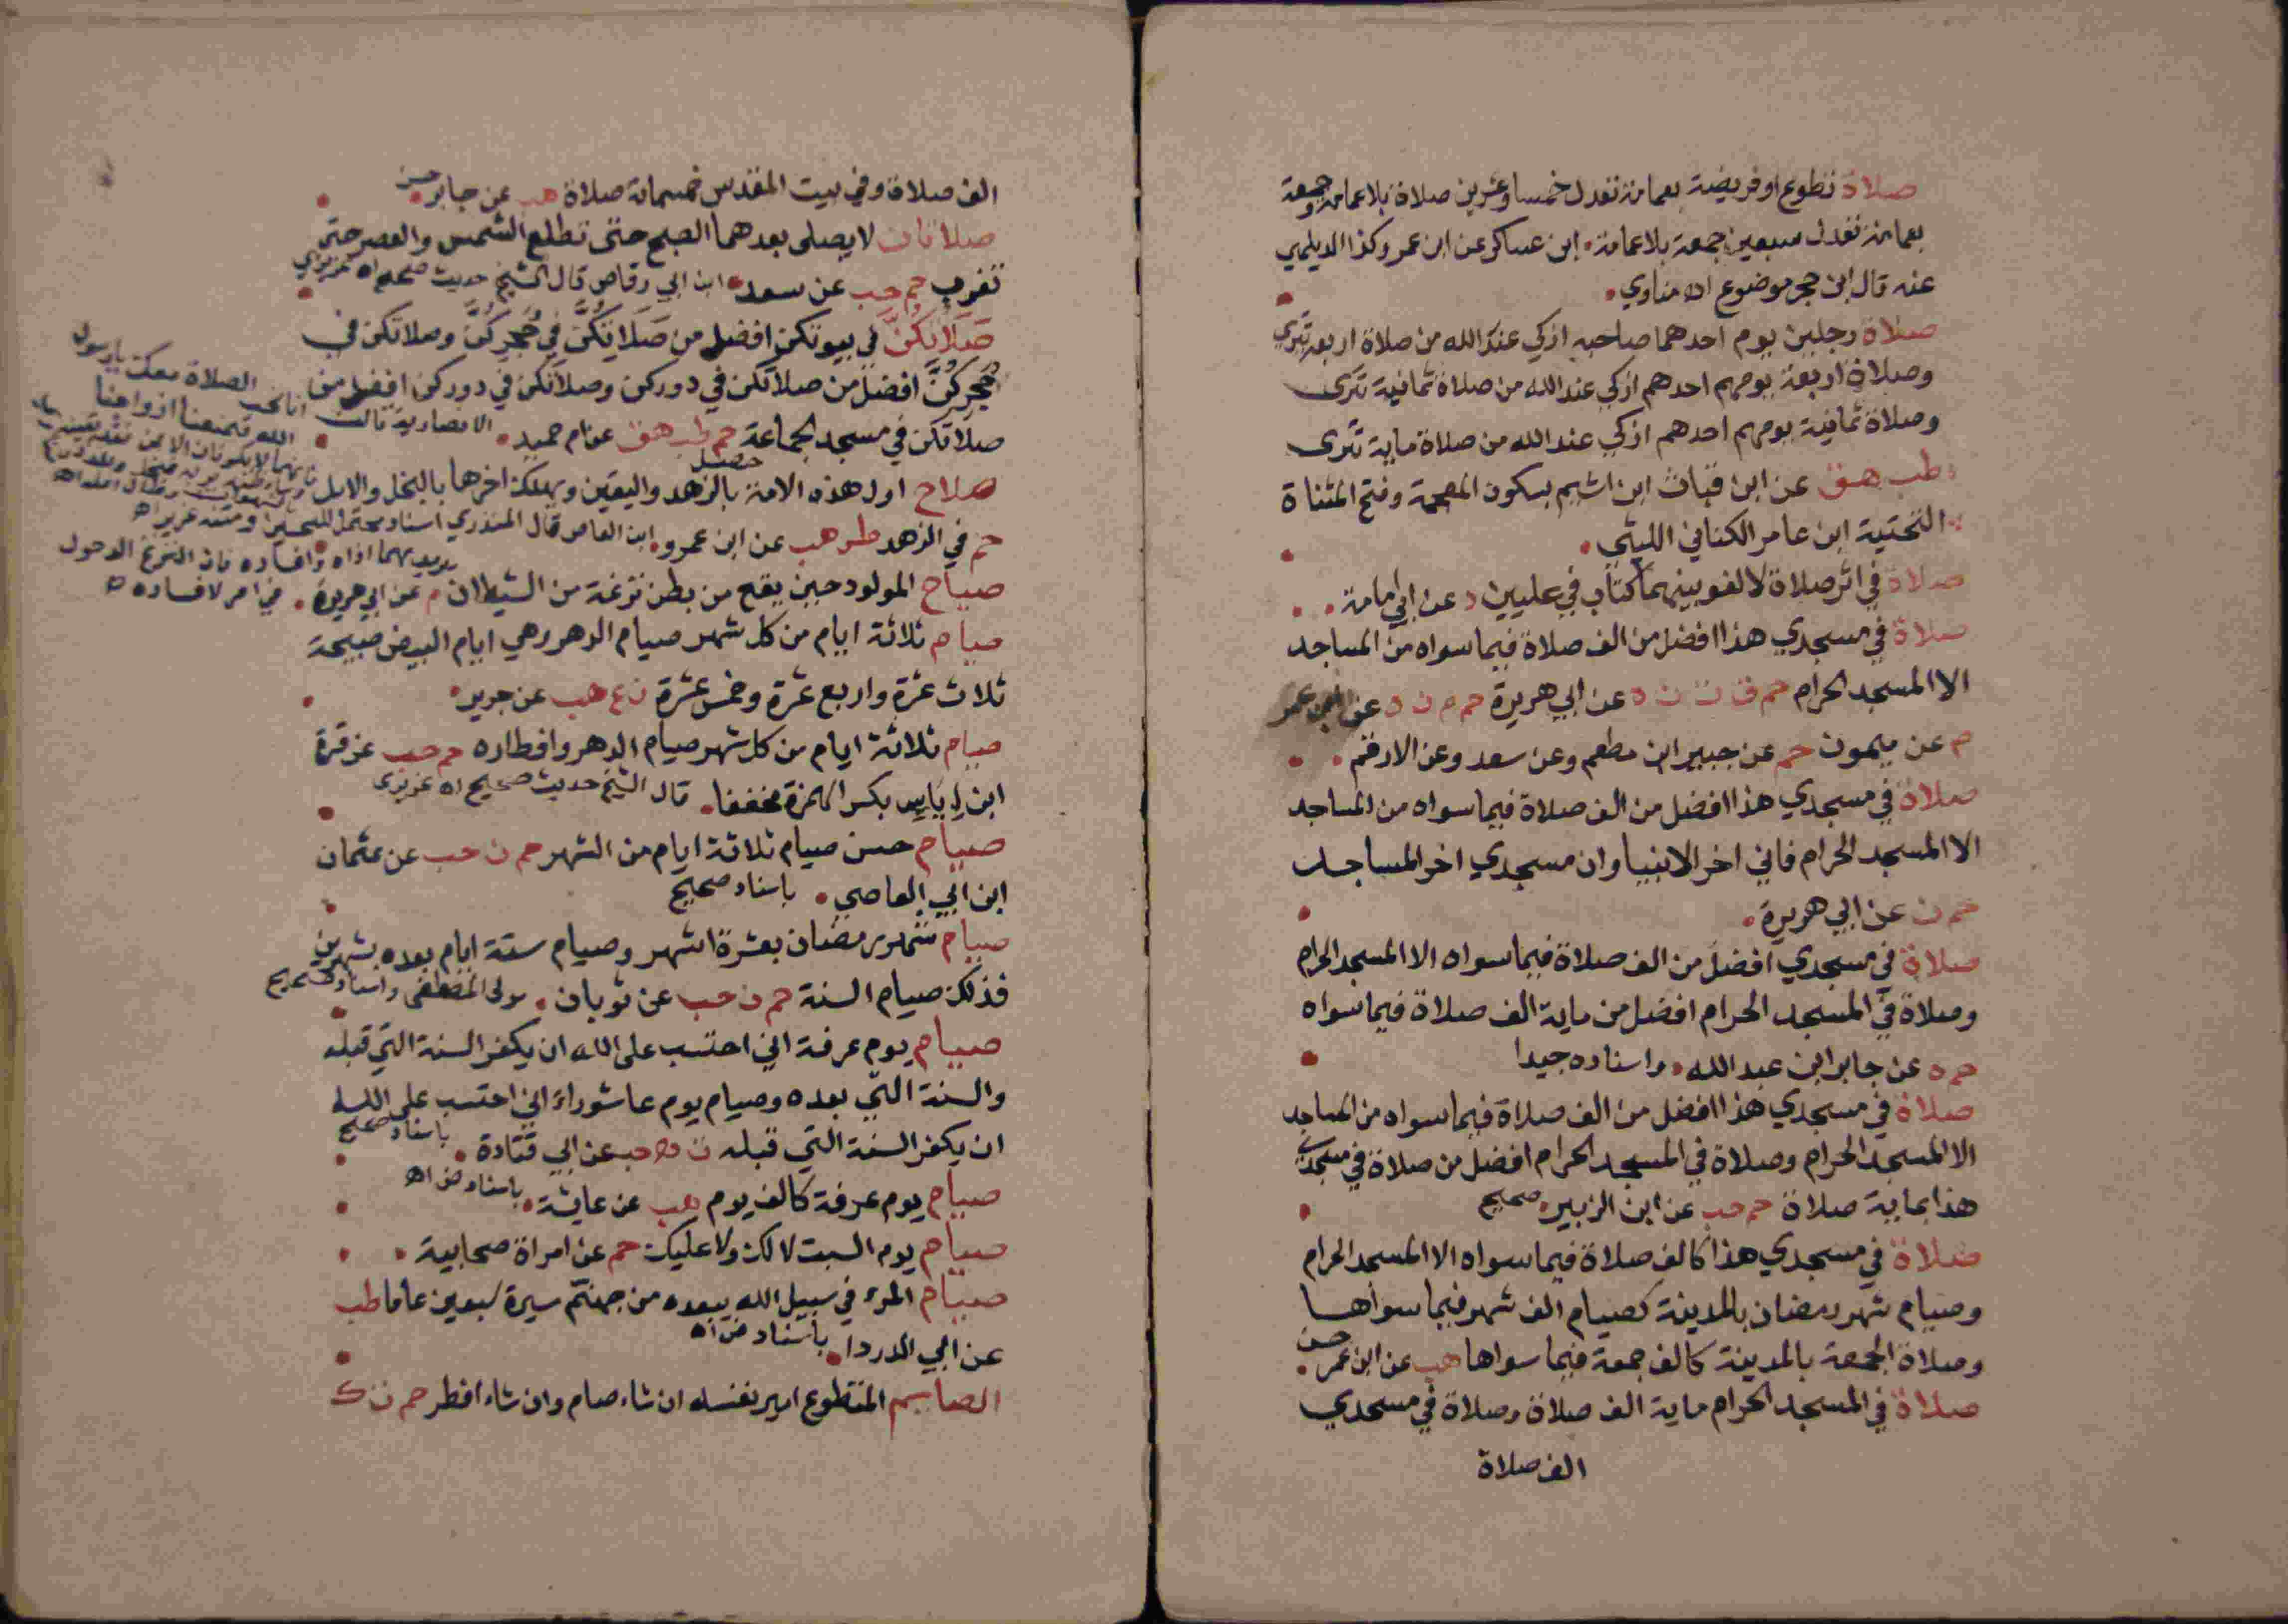 صلاة تطوع او فريضة بعمامة تعدل خمسا وعشرين صلاة بلا عمامة وجمعة
بعمامة تعدل سبعين جمعة بلا عمامة • ابن عساكر عن ابن عمر وكذا الديلمي
عنه قال ابن حجر موضوع اه مناوي •
صلاة رجلين يوم احدهما صاحبه ازكي عند الله من صلاة اربعة تترى
وصلاة اربعة يومهم احدهم ازكي عند الله من صلاة ثمانية تترى
وصلاة ثمانية يومهم احدهم ازكي عند الله من صلاة ماية تترى
طب هق عن ابن قباث ابن اشيم بسكون المعجمة وفتح المثناة
التحتية ابن عامر الكناني الليثي •
صلاة في اثر صلاة لا لغو بينهما كتاب في عليين د عن ابي امامة •
صلاة في مسجدي هذا افضل من الف صلاة فيما سواه من المساجد
الا المسجد الحرام حم ق ت ن ه عن ابي هريرة حم م ن ه عن ابن عمر
م عن ميمون حم عن جبير ابن مطعم وعن سعد وعن الارقم •
صلاة في مسجدي هذا افضل من الف صلاة فيما سواه من المساجد
الا المسجد الحرام فاني اخر الانبيا وان مسجدي اخر المساجد
حم ن عن ابي هريرة •
صلاة في مسجدي افضل من الف صلاة فيما سواه الا المسجد الحرام
وصلاة في المسجد الحرام افضل من ماية الف صلاة فيما سواه
حم ه عن جابر ابن عبد الله • واسناده جيدا
صلاة في مسجدي هذا افضل من الف صلاة فيما سواه من المساجد
الا المسجد الحرام وصلاة في المسجد الحرام افضل من صلاة في مسجدي
هذا بماية صلاة حم حب عن ابن الزبير • صحيح
صلاة في مسجدي هذا كالف صلاة فيما سواه الا المسجد الحرام
وصيام شهر رمضان بالمدينة كصيام الف شهر فيما سواها
وصلاة الجمعة بالمدينة كالف جمعة فيما سواها هب عن ابن عمر • حسن
صلاة في المسجد الحرام ماية الف صلاة وصلاة في مسجدي
الف صلاة
الف صلاة وفي بيت المقدس خمسمائة صلاة هب عن جابر • حسن
صلاتان لا يصلى بعدهما الصبح حتى تطلع الشمس والعصر حتى
تغرب حم حب عن سعد • ابن ابي وقاص قال الشيخ حديث صحيح اه عزيزي
صَلَاتكُنَّ في بيوتكن افضل من صَلَاتِكُنَّ فِي حُجَرِكُنَّ وصلاتكن في
حُجَرِكُنَّ افضل من صلاتكن في دوركن وصلاتكن في دوركن افضل من
صلاتكن في مسجد الجماعة حم طب هق عن ام حميد • الانصارية قالت
انا نحب الصلاة معك يا رسول
الله فتمنعنا ازواجنا
صلاح اول هذه الامة بالزهد واليقين ويهلك اخرها بالبخل والامل
حم في الزهد طس هب عن ابن عمرو • ابن العاص قال المنذري اسناده محتمل للتحسين ومتنه غريب اه
صياح المولود حين يقع من بطن نزغة من الشيطان م عن ابي هريرة •
يريد بهما اذاه وافساده فان النزغ الدخول
في امر لافساده
صيام ثلاثة ايام من كل شهر صيام الدهر وهي ايام البيض صبيحة
ثلاث عشرة واربع عشرة وخمس عشرة ن ع هب عن جرير •
صيام ثلاثة ايام من كل شهر صيام الدهر وافطاره حم حب عن قرة
ابن اياس بكسر الهمزة مخففا • قال الشيخ حديث صحيح اه عزيزى
صيام حسن صيام ثلاثة ايام من الشهر حم ن حب عن عثمان
ابن ابي العاصي • باسناد صحيح
صيام شهر رمضان بعشرة اشهر وصيام ستة ايام بعده بشهرين
فذلك صيام السنة حم ن حب عن ثوبان • مولى المصطفى واسناده صحيح
صيام يوم عرفة اني احتسب على الله ان يكفر السنة التي قبله
والسنة التي بعده وصيام يوم عاشوراء اني احتسب على الله
ان يكفر السنة التي قبله ت ه حب عن ابي قتادة • باسناد صحيح
صيام يوم عرفة كالف يوم هب عن عايشة • باسناد ض اه
صيام يوم السبت لا لك ولا عليك حم عن امراة صحابية •
صيام المرء في سبيل الله يبعده من جهنم سيرة سبعين عاما طب
عن ابي الدردا • باسناد ض اه
الصايم المتطوع امير نفسه ان شاء صام وان شاء افطر حم ت ك